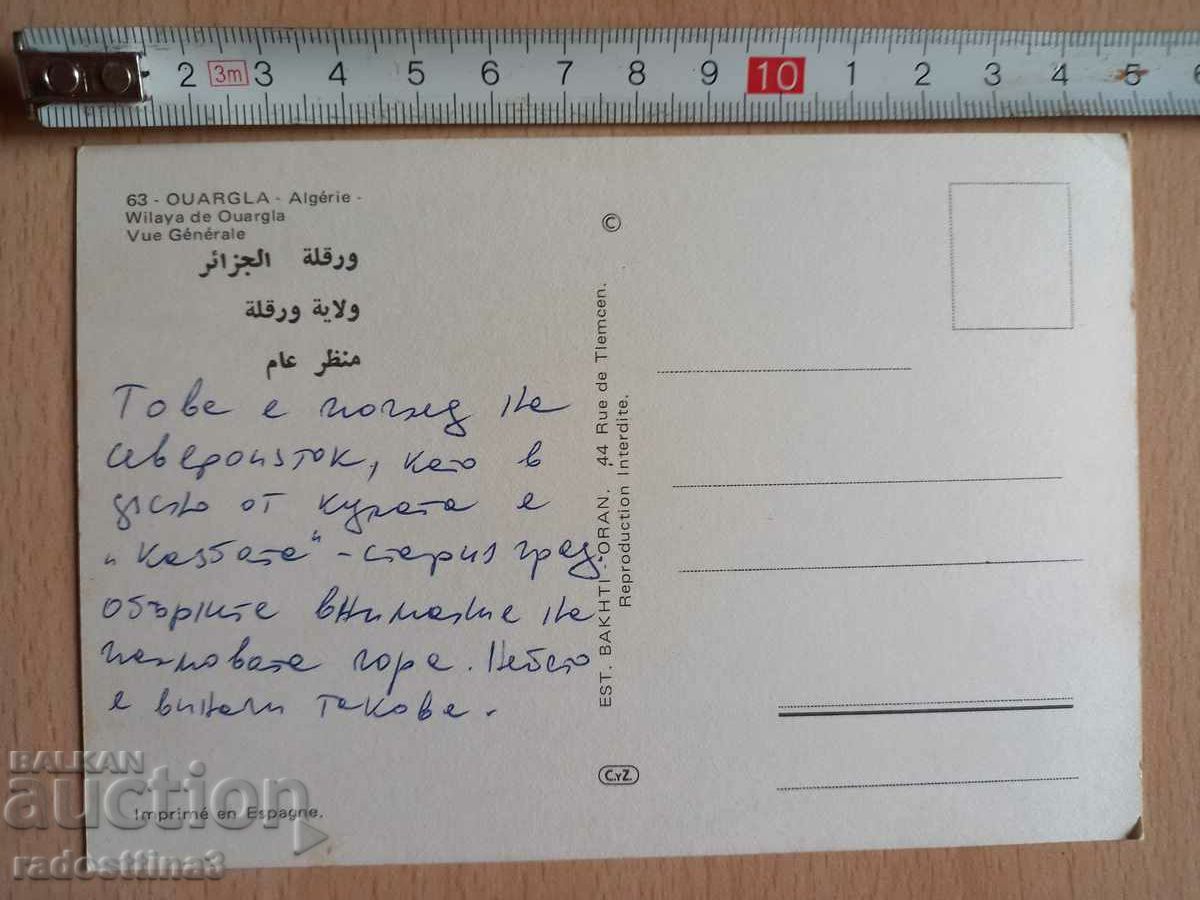 2 3m 3 4 5 6 7 8 9 10 1 2 3 4 5 6
63 - OUARGLA - Algérie -
Wilaya de Ouargla
Vue Générale
ورقلة الجزائر
ولاية ورقلة
منظر عام
Това е поглед на
североизток, като в
дясно от кулата е
„Казбата“ - стария град.
обърнете внимание на
палмовата гора. Небето
е винаги такова.
©
EST. BAKHTI - ORAN. 44 Rue de Tlemcen.
Reproduction Interdite.
C.Y.Z.
Imprimé en Espagne.
BALKAN
auction
radosttina3